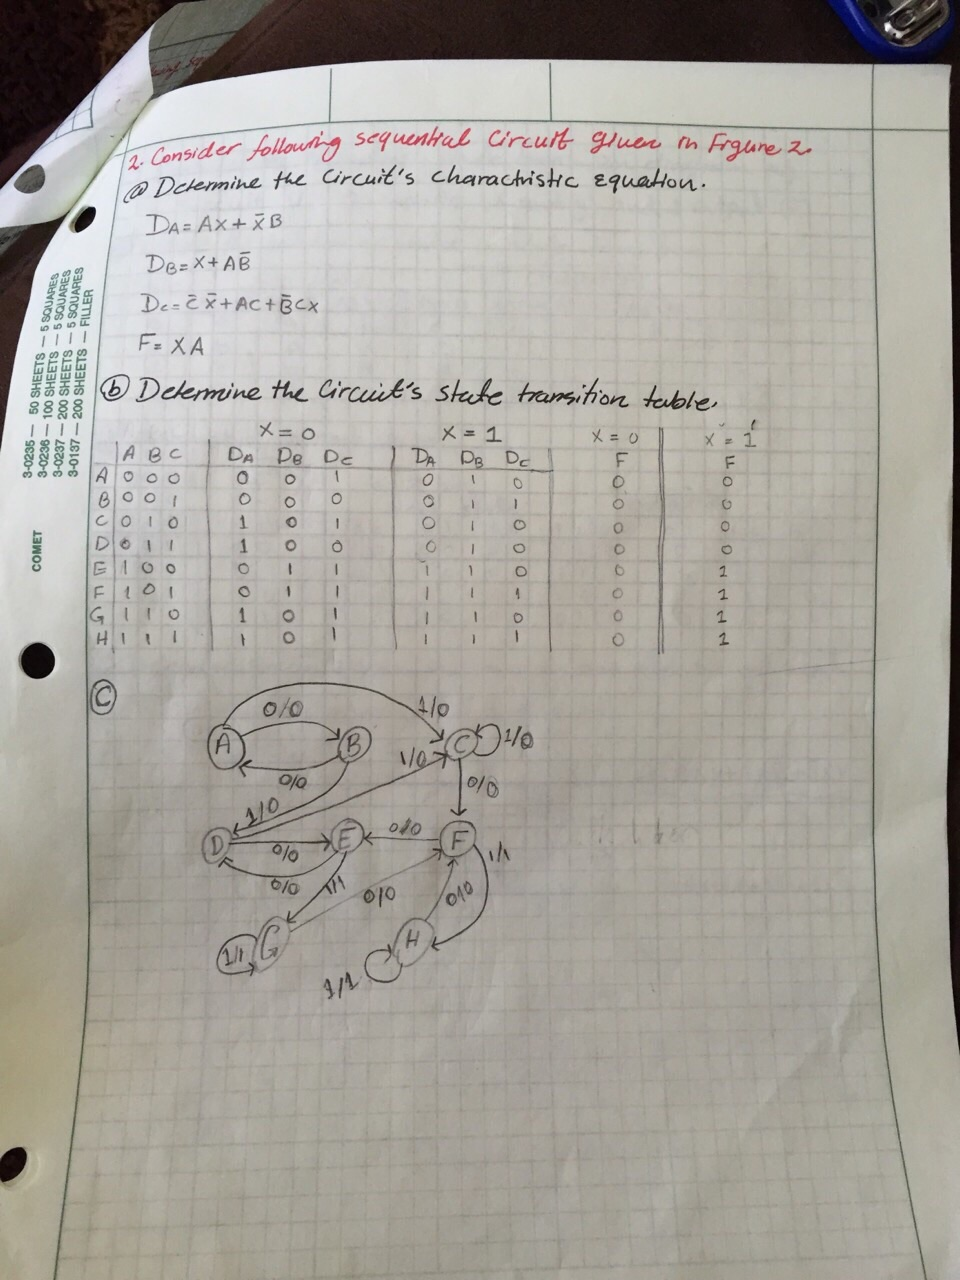 2. Consider following sequential Circuit given in Figure 2.
ⓐ Determine the Circuit's charactristic equation.
DA= Ax + x̄B
DB= X + AB̄
Dc= c̄ x̄ + AC + B̄Cx
F= XA
ⓑ Determine the Circuit's state transition table.
X = 0 X = 1 X = 0 X = 1
A B C DA DB DC DA DB DC F F
A 0 0 0 0 0 1 0 1 0 0 0
B 0 0 1 0 0 0 0 1 1 0 0
C 0 1 0 1 0 1 0 1 0 0 0
D 0 1 1 1 0 0 0 1 0 0 0
E 1 0 0 0 1 1 1 1 0 0 1
F 1 0 1 0 1 1 1 1 1 0 1
G 1 1 0 1 0 1 1 1 0 0 1
H 1 1 1 1 0 1 1 1 1 0 1
ⓒ
0/0 1/0
A B C 1/0
1/0
0/0 0/0
1/0
D E 0/0 F
0/0 1/1
0/0 1/1 0/0 0/0
G H
1/1
1/1
3-0235 — 50 SHEETS — 5 SQUARES
3-0236 — 100 SHEETS — 5 SQUARES
3-0237 — 200 SHEETS — 5 SQUARES
3-0137 — 200 SHEETS — FILLER
COMET